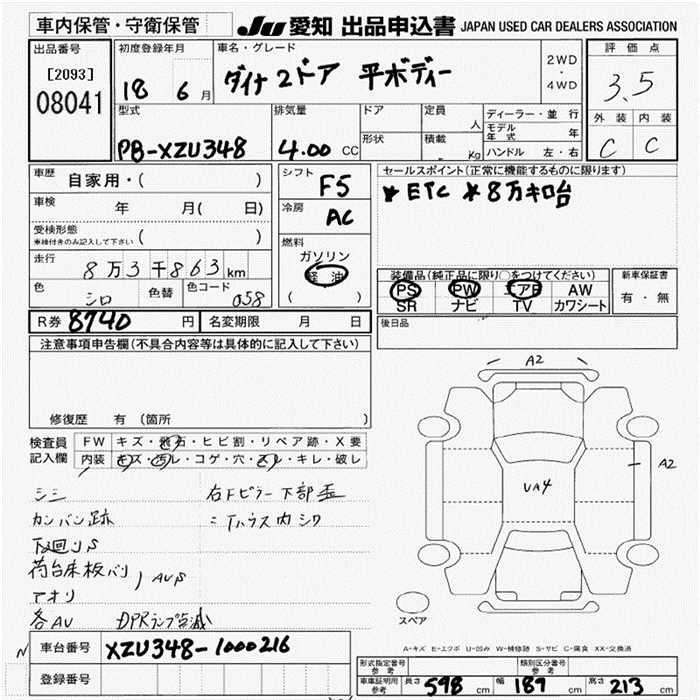 車内保管・守衛保管
JU 愛知 出品申込書 JAPAN USED CAR DEALERS ASSOCIATION
出品番号
[2093]
08041
初度登録年月
18 6月
車名・グレード
ダイナ 2ドア 平ボディー
2WD
・
4WD
評価点
3.5
外装 内装
C C
型式
PB-XZU348
排気量
4.00 CC
ドア
形状
定員
人
積載
kg
ディーラー・並行
モデル年式 年
ハンドル 左・右
車歴
自家用・( )
車検
年 月( 日)
受検形態
車検付きのみ記入して下さい ( )
走行
8万3千863km
色 シロ 色替 色コード 058
シフト
F5
冷房
AC
燃料
ガソリン
軽油
( )
セールスポイント(正常に機能するものに限ります)
* ETC * 8万キロ台
装備品(純正品に限り○をつけてください)
PS PW エアB AW
SR ナビ TV カワシート
新車保証書
有・無
R券 8740 円
名変期限 月 日
後日品
注意事項申告欄(不具合内容等は具体的に記入して下さい)
修復歴 有 (箇所 )
検査員
記入欄
FW キズ・飛石・ヒビ割・リペア跡・X要
内装 キズ・汚レ・コゲ・穴・スレ・キレ・破レ
シミ
カンバン跡
下廻りS
荷台床板バリ
アオリ
AUS
各AU DPRランプ点滅
右Fピラー下部歪
ニTハウス内シワ
A2
A2
UA4
スペア
A-キズ E-エクボ U-凹み W-補修跡 S-サビ C-腐食 XX-交換済
車台番号
XZU348-1000216
登録番号
型式指定番号
参考
類別区分番号
参考
車庫証明用
参考
長さ 598 cm 幅 189 cm 高さ 213 cm